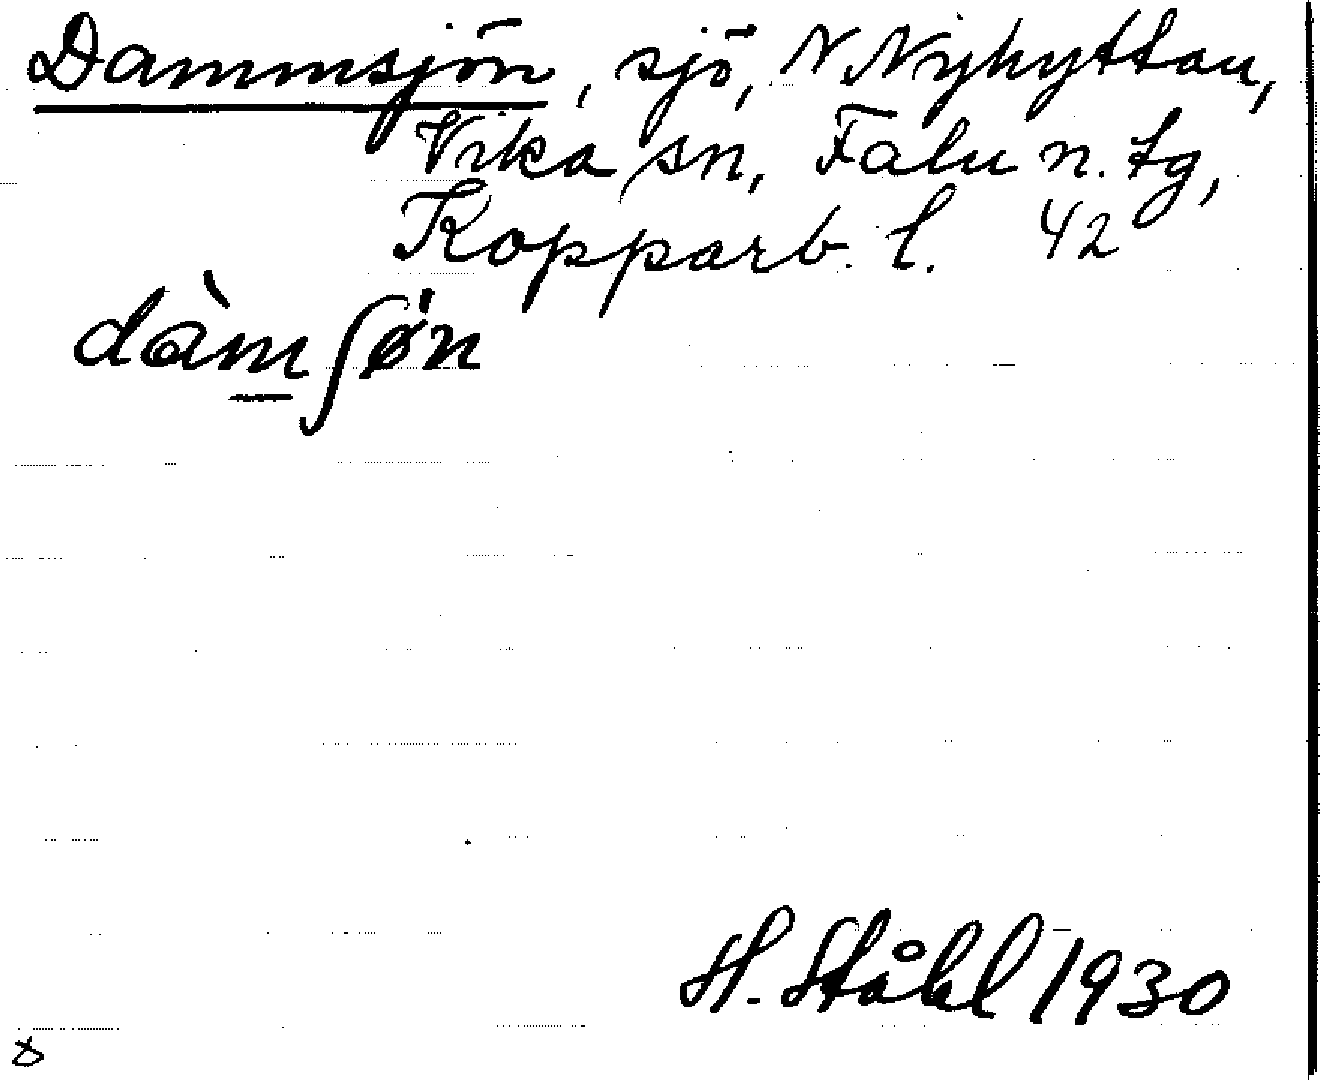 Dammsjön, sjö, N Nyhyttan,
Vika sn, Falu n. tg,
Kopparb. l. 42
dàm̲ʃøn
H. Ståhl 1930